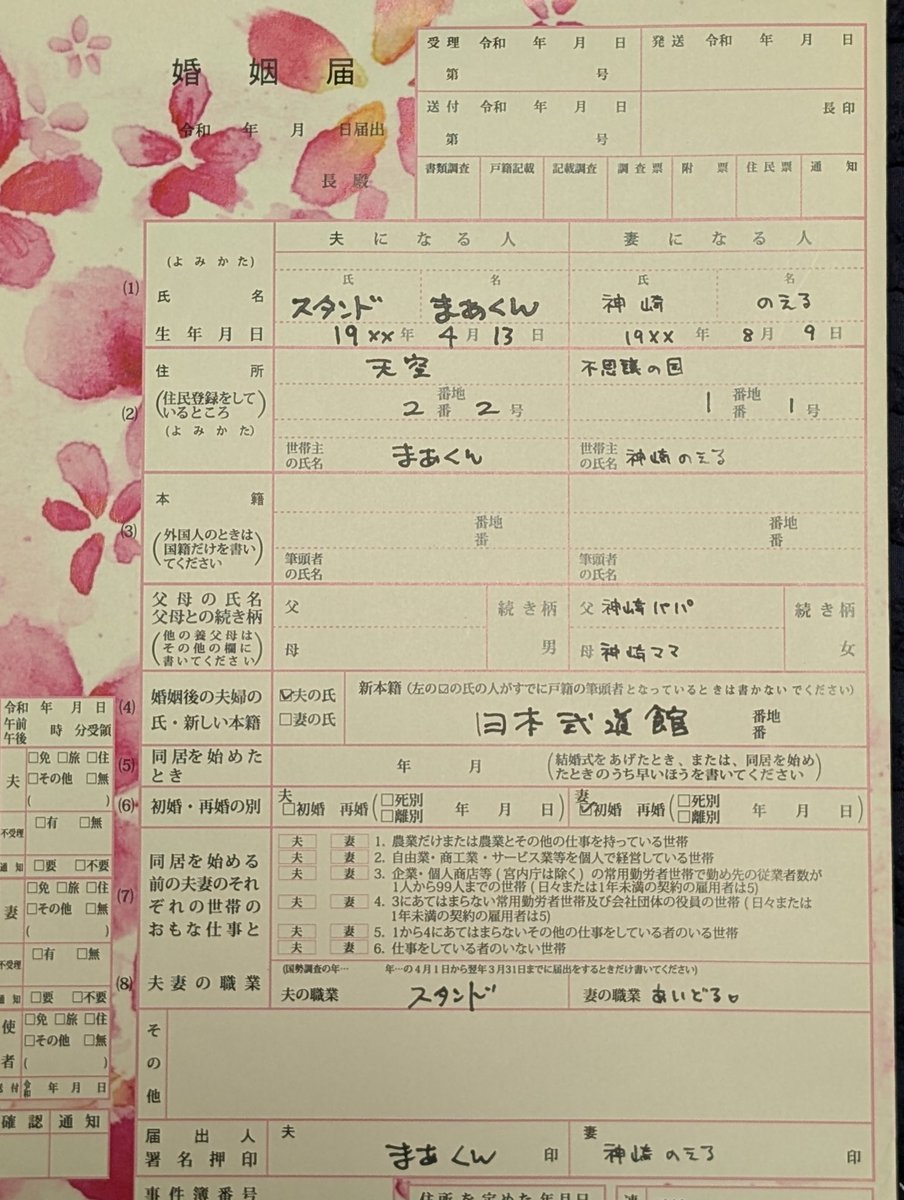 婚姻届
令和 年 月 日届出
長 殿
受理 令和 年 月 日
第 号
発送 令和 年 月 日
送付 令和 年 月 日
第 号
長印
書類調査 戸籍記載 記載調査 調査票 附票 住民票 通知
夫になる人 妻になる人
(1)
(よみかた)
氏名
氏 名 氏 名
スタンド まあくん 神崎 のえる
生年月日
19xx年 4月 13日 19xx年 8月 9日
(2)
住所
天空 不思議の国
(住民登録をしているところ)
(よみかた)
2 番地 番 2号 1 番地 番 1号
世帯主の氏名 まあくん 世帯主の氏名 神崎のえる
(3)
本籍
(外国人のときは国籍だけを書いてください)
番地 番 番地 番
筆頭者の氏名 筆頭者の氏名
父母の氏名
父母との続き柄
(他の養父母はその他の欄に書いてください)
父 続き柄 父 神崎パパ 続き柄
母 男 母 神崎ママ 女
(4)
婚姻後の夫婦の氏・新しい本籍
☑夫の氏
□妻の氏
新本籍(左の☑の氏の人がすでに戸籍の筆頭者となっているときは書かないでください)
日本武道館 番地 番
(5)
同居を始めたとき
年 月
(結婚式をあげたとき、または、同居を始めたときのうち早いほうを書いてください)
(6)
初婚・再婚の別
夫
□初婚 再婚(□死別 □離別 年 月 日)
妻
☑初婚 再婚(□死別 □離別 年 月 日)
(7)
同居を始める前の夫妻のそれぞれの世帯のおもな仕事と
夫 妻 1. 農業だけまたは農業とその他の仕事を持っている世帯
夫 妻 2. 自由業・商工業・サービス業等を個人で経営している世帯
夫 妻 3. 企業・個人商店等(官庁は除く)の常用勤労者世帯で勤め先の従業者数が
1人から99人までの世帯(日々または1年未満の契約の雇用者は5)
夫 妻 4. 3にあてはまらない常用勤労者世帯及び会社団体の役員の世帯(日々または
1年未満の契約の雇用者は5)
夫 妻 5. 1から4にあてはまらないその他の仕事をしている者のいる世帯
夫 妻 6. 仕事をしている者のいない世帯
(8)
夫妻の職業
(国勢調査の年… 年…の4月1日から翌年3月31日までに届出をするときだけ書いてください)
夫の職業 スタンド 妻の職業 あいどる。
その他
届出人
署名押印
夫 まあくん 印 妻 神崎のえる 印
事件簿番号
住所を定めた年月日
令和 年 月 日
午前
午後 時 分受領
夫
□免 □旅 □住
□その他 □無
( )
不受理 □有 □無
通知 □要 □不要
妻
□免 □旅 □住
□その他 □無
( )
不受理 □有 □無
通知 □要 □不要
使者
□免 □旅 □住
□その他 □無
( )
令和 年 月 日
確認 通知